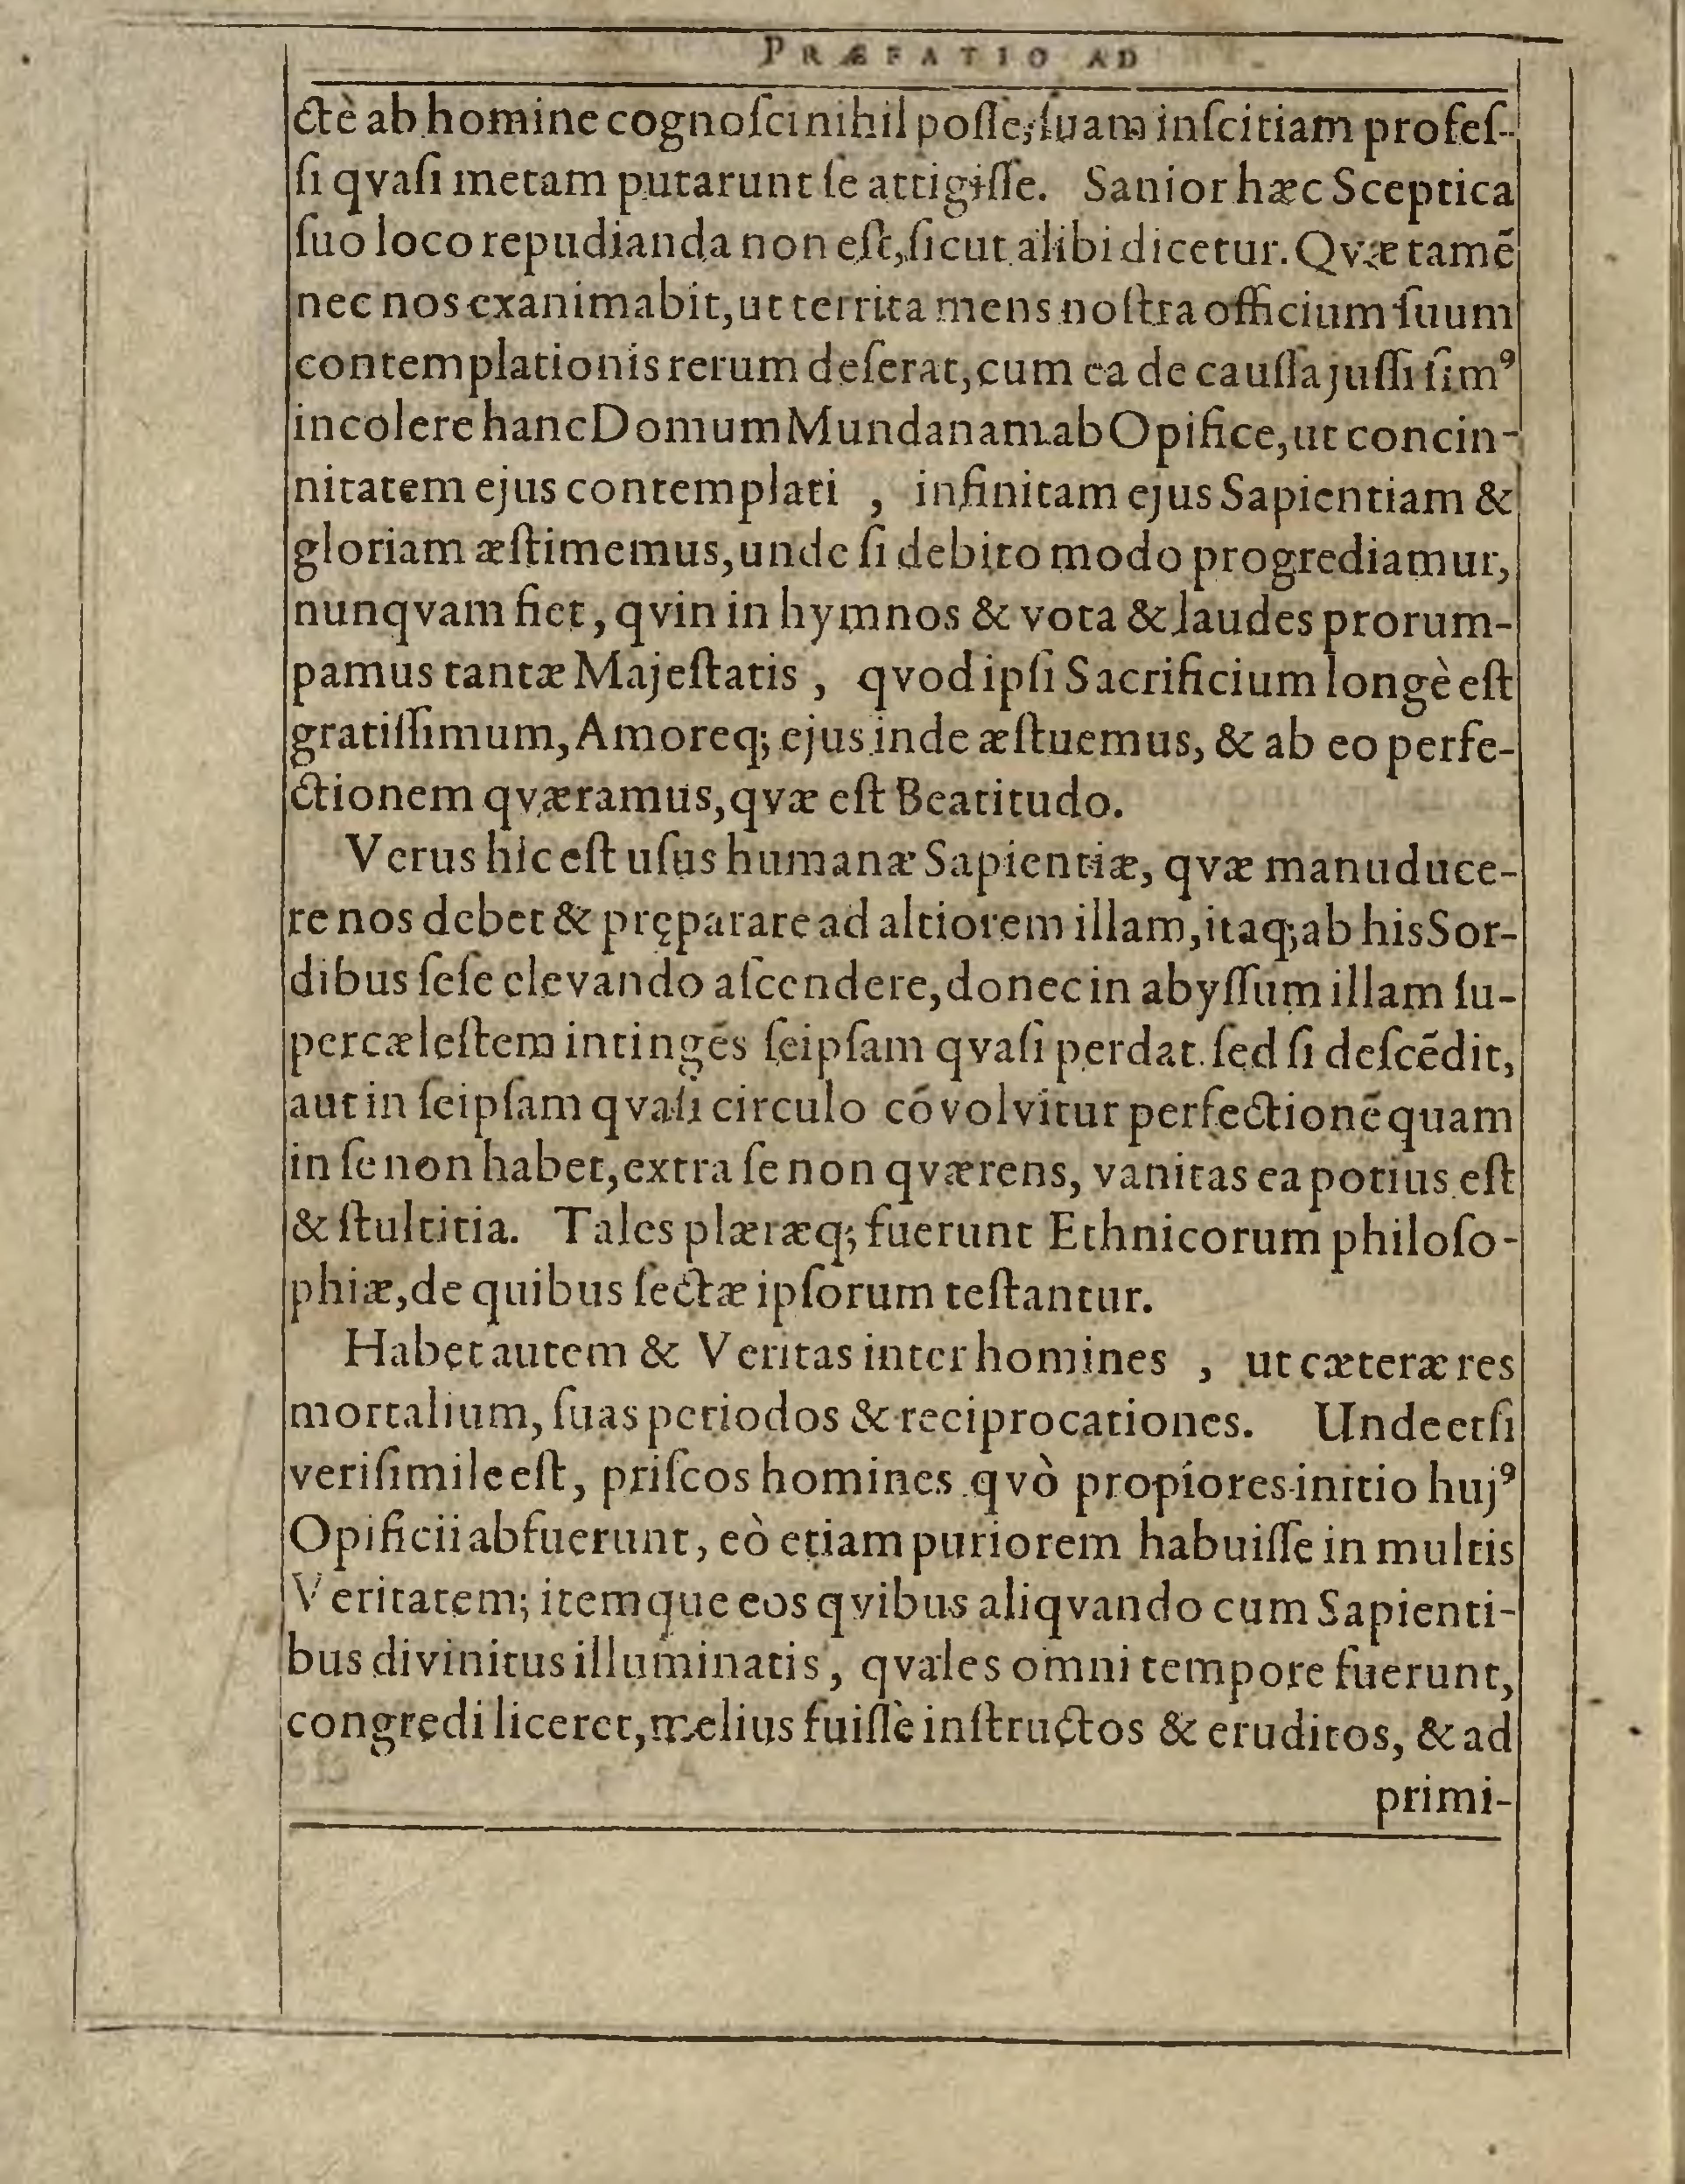 PRÆFATIO AD
ctè ab homine cognoſci nihil poſſe, ſuam inſcitiam profeſ-
ſi qvaſi metam putarunt ſe attigiſſe. Sanior hæc Sceptica
ſuo loco repudianda non eſt, ſicut alibi dicetur. Qvæ tamẽ
nec nos exanimabit, ut territa mens noſtra officium ſuum
contemplationis rerum deſerat, cum ea de cauſſa juſſi ſimꝰ
incolere hanc Domum Mundanam ab Opifice, ut concin-
nitatem ejus contemplati , infinitam ejus Sapientiam &
gloriam æſtimemus, unde ſi debito modo progrediamur,
nunqvam fiet, qvin in hymnos & vota & laudes prorum-
pamus tantæ Majeſtatis , qvod ipſi Sacrificium longè eſt
gratiſſimum, Amoreq; ejus inde æſtuemus, & ab eo perfe-
ctionem qværamus, qvæ eſt Beatitudo.
Verus hic eſt uſus humanæ Sapientiæ, qvæ manuduce-
re nos debet & pręparare ad altiorem illam, itaq; ab his Sor-
dibus ſeſe elevando aſcendere, donec in abyſſum illam ſu-
percæleſtem intingẽs ſeipſam qvaſi perdat. ſed ſi deſcẽdit,
aut in ſeipſam qvaſi circulo cõvolvitur perfectionẽ quam
in ſe non habet, extra ſe non qværens, vanitas ea potius eſt
& ſtultitia. Tales plæræq; fuerunt Ethnicorum philoſo-
phiæ, de quibus ſectæ ipſorum teſtantur.
Habet autem & Veritas inter homines , ut cæteræ res
mortalium, ſuas periodos & reciprocationes. Unde etſi
veriſimile eſt, priſcos homines qvò propiores initio hujꝰ
Opificii abfuerunt, eò etiam puriorem habuiſſe in multis
Veritatem; itemque eos qvibus aliqvando cum Sapienti-
bus divinitus illuminatis, qvales omni tempore fuerunt,
congredi liceret, melius fuiſſe inſtructos & eruditos, & ad
primi-